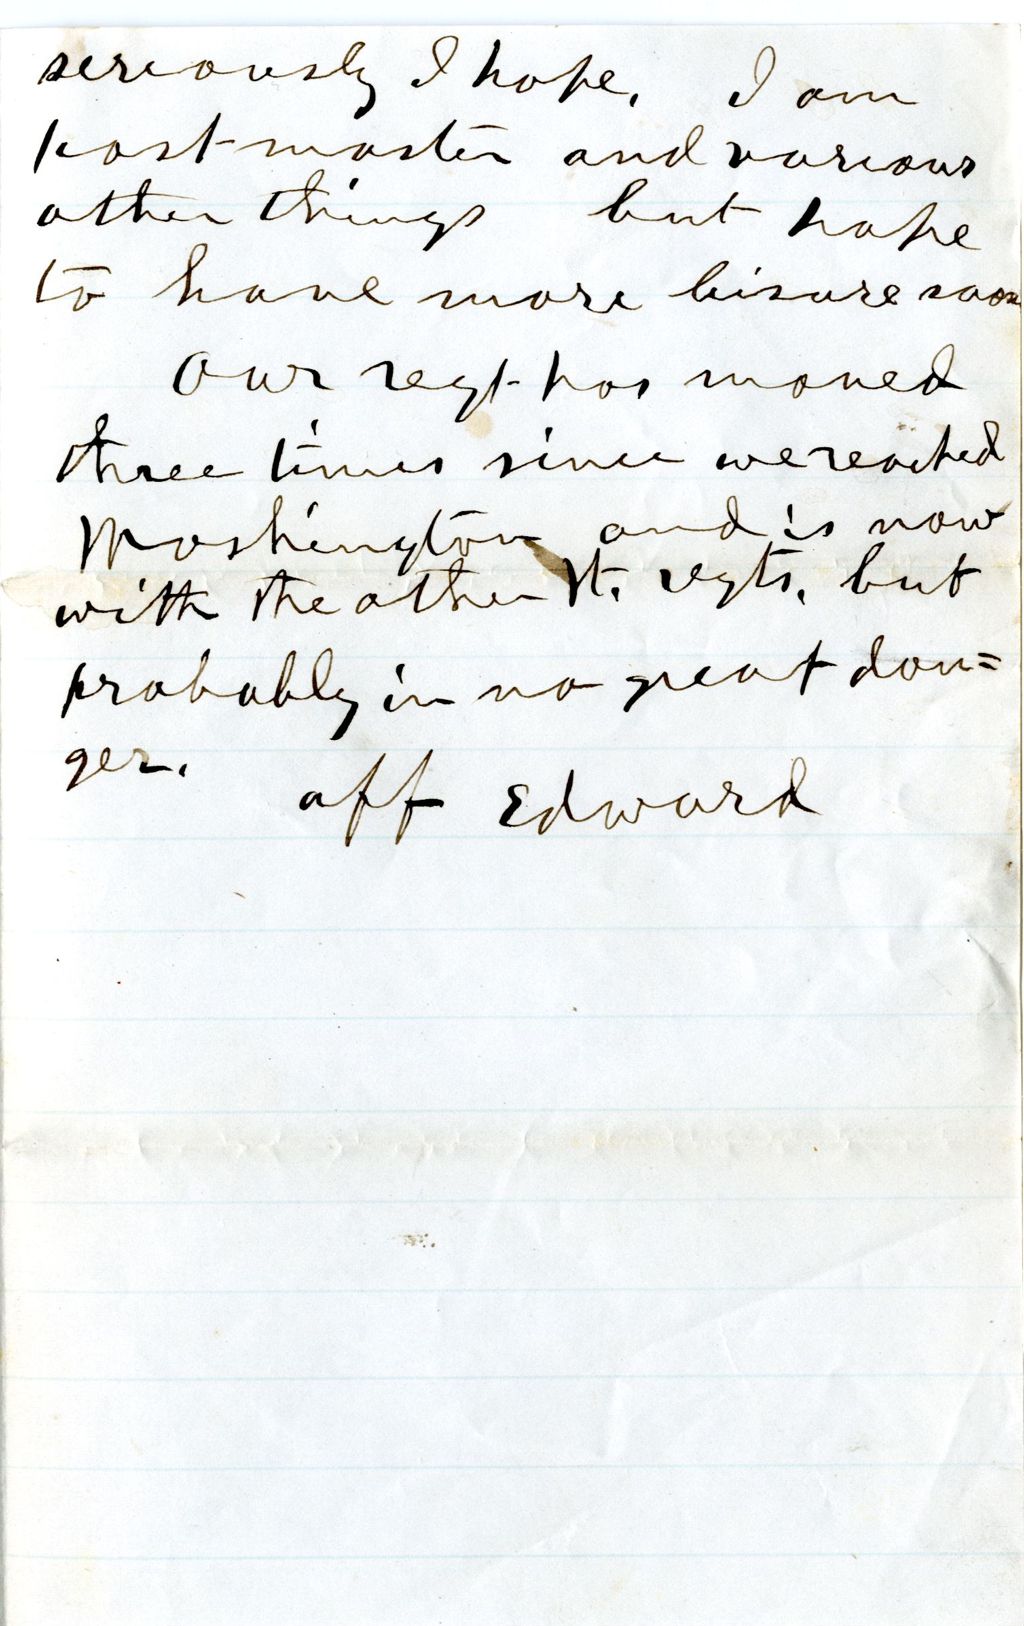 seriously I hope. I am
postmaster and various
other things but hope
to have more leisure soon
Our regt has moved
three times since we reached
Washington and is now
with the other Vt. regts. but
probably in no great dan=
ger.
aff Edward